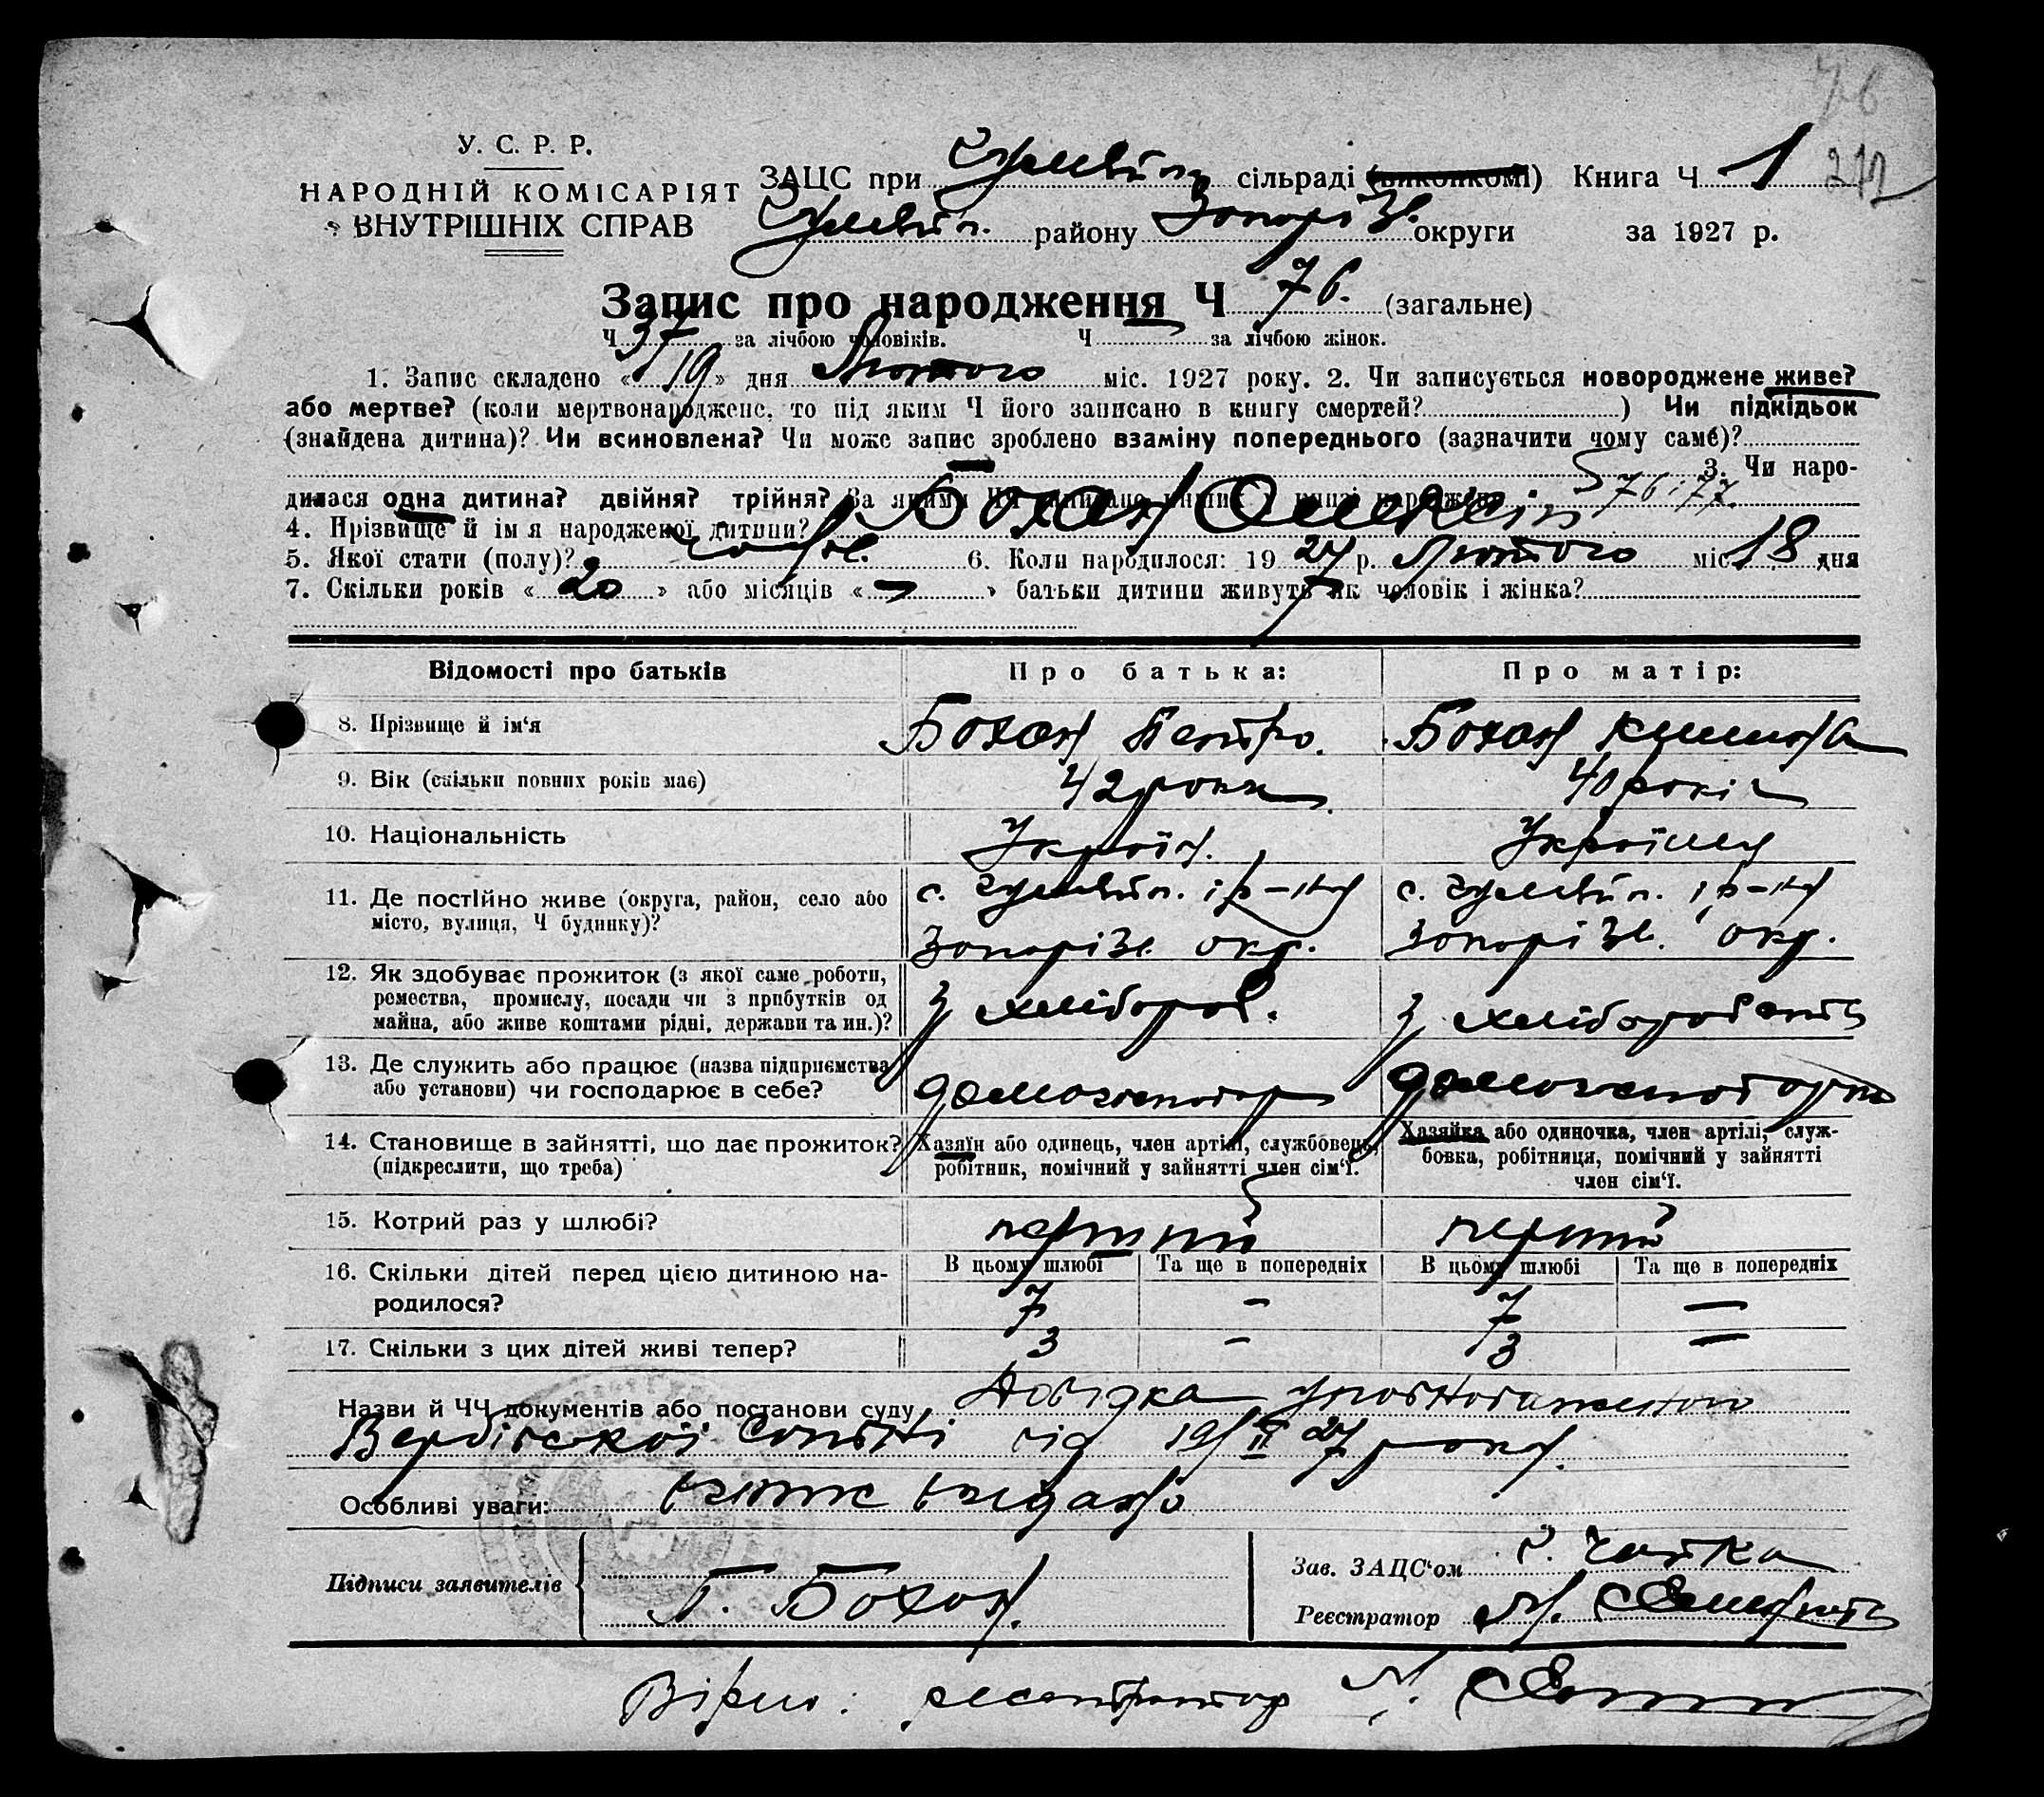 76
212
У. С. Р. Р.
НАРОДНІЙ КОМІСАРІЯТ
ВНУТРІШНІХ СПРАВ
ЗАЦС при Гуляйпіл. сільраді (виконкомі) Книга Ч 1
Гуляйпіл. району Запоріз. округи за 1927 р.
Запис про народження Ч 76. (загальне)
Ч 37 за лічбою чоловіків. Ч за лічбою жінок.
1. Запис складено « 19 » дня Лютого міс. 1927 року. 2. Чи записується новороджене живе?
або мертве? (коли мертвонароджене, то під яким Ч його записано в книгу смертей? ) Чи підкідьок
(знайдена дитина)? Чи всиновлена? Чи може запис зроблено взаміну попереднього (зазначити чому саме)?
3. Чи наро-
дилася одна дитина? двійня? трійня? За якими ЧЧ 76 і 77.
4. Прізвище й ім я народженої дитини? Бохан Олексій
5. Якої стати (полу)? чолов. 6. Коли народилося: 19 27 р. Лютого міс 18 дня
7. Скільки років « 20 » або місяців « – » батьки дитини живуть як чоловік і жінка?
Відомості про батьків Про батька: Про матір:
8. Прізвище й ім‘я Бохан Петро. Бохан
9. Вік (скільки повних років має) 42 роки 40 років
10. Національність Україн. Українка
11. Де постійно живе (округа, район, село або місто, вулиця, Ч будинку)? с. Гуляйпіл. і р-ну с. Гуляйпіл. і р-ну
Запорізь. окр. Запорізь. окр.
12. Як здобуває прожиток (з якої саме роботи, ремества, промислу, посади чи з прибутків од майна, або живе коштами рідні, держави та ин.)? З хлібороб. З хліборобства
13. Де служить або працює (назва підприємства або установи) чи господарює в себе? домогосподар домогосподарка
14. Становище в зайнятті, що дає прожиток? (підкреслити, що треба) Хазяїн або одинець, член артілі, службовець, робітник, помічний у зайнятті член сім‘ї. Хазяйка або одиночка, член артілі, служ-
бовка, робітниця, помічний у зайнятті
член сім‘ї.
15. Котрий раз у шлюбі? перший перший
16. Скільки дітей перед цією дитиною на-
родилося? В цьому шлюбі Та ще в попередніх В цьому шлюбі Та ще в попередніх
7 – 7 –
17. Скільки з цих дітей живі тепер? 3 – 3 –
Назви й ЧЧ документів або постанови суду Довідка уповноваженого
Вербівської Сотні від 19/II 27 року.
Особливі уваги:
Підписи заявителів П. Бохан.
Зав. ЗАЦС‘ом
Реєстратор
Вірно: реєстратор